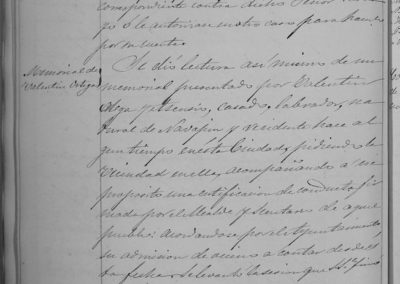 correspondiente contra dicho Señor
gó ó le autorizan en otro caso para
por su cuenta.
Memorial de
Valentin Ortega
Se dió lectura asi mismo de un
memorial presentado por Valentin
y Asensio, casado, labrador, na
tural de y residente hace al
gun tiempo en ésta Ciudad, pidiendo la
Vecindad en ella, acompañando á su
proposito una certificacion de conducta fir
mada por el Alcalde y Secretario de aquel
pueblo: acordandose por el Ayuntamiento
su admision de vecino á contar desde es
ta fecha. Se levantó la sesion que